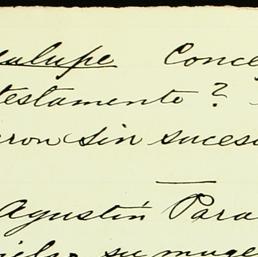 dalupe Conce
testamento?
ron sin suces
Agustín Para
su muge